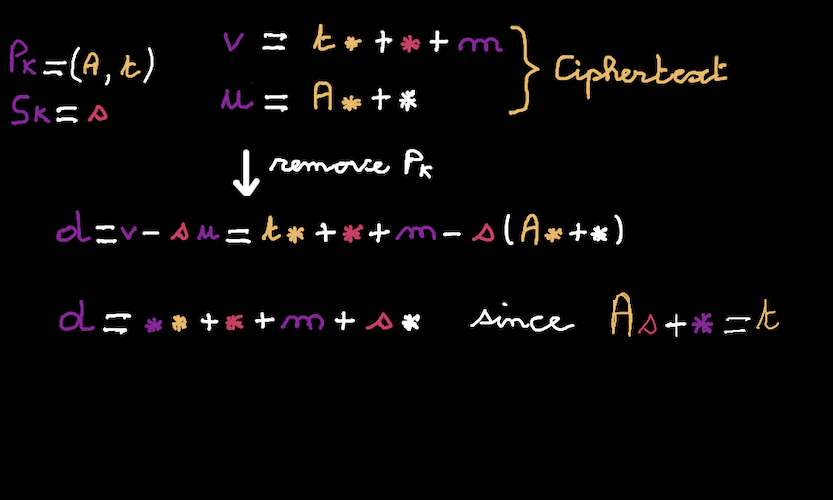 Pk=(A, t)
Sk= s
v = t * + * + m
u = A * + *
Ciphertext
remove Pk
d=v- s u = t * + * + m - s (A * + *)
d = * * + * + m + s * since As + * = t